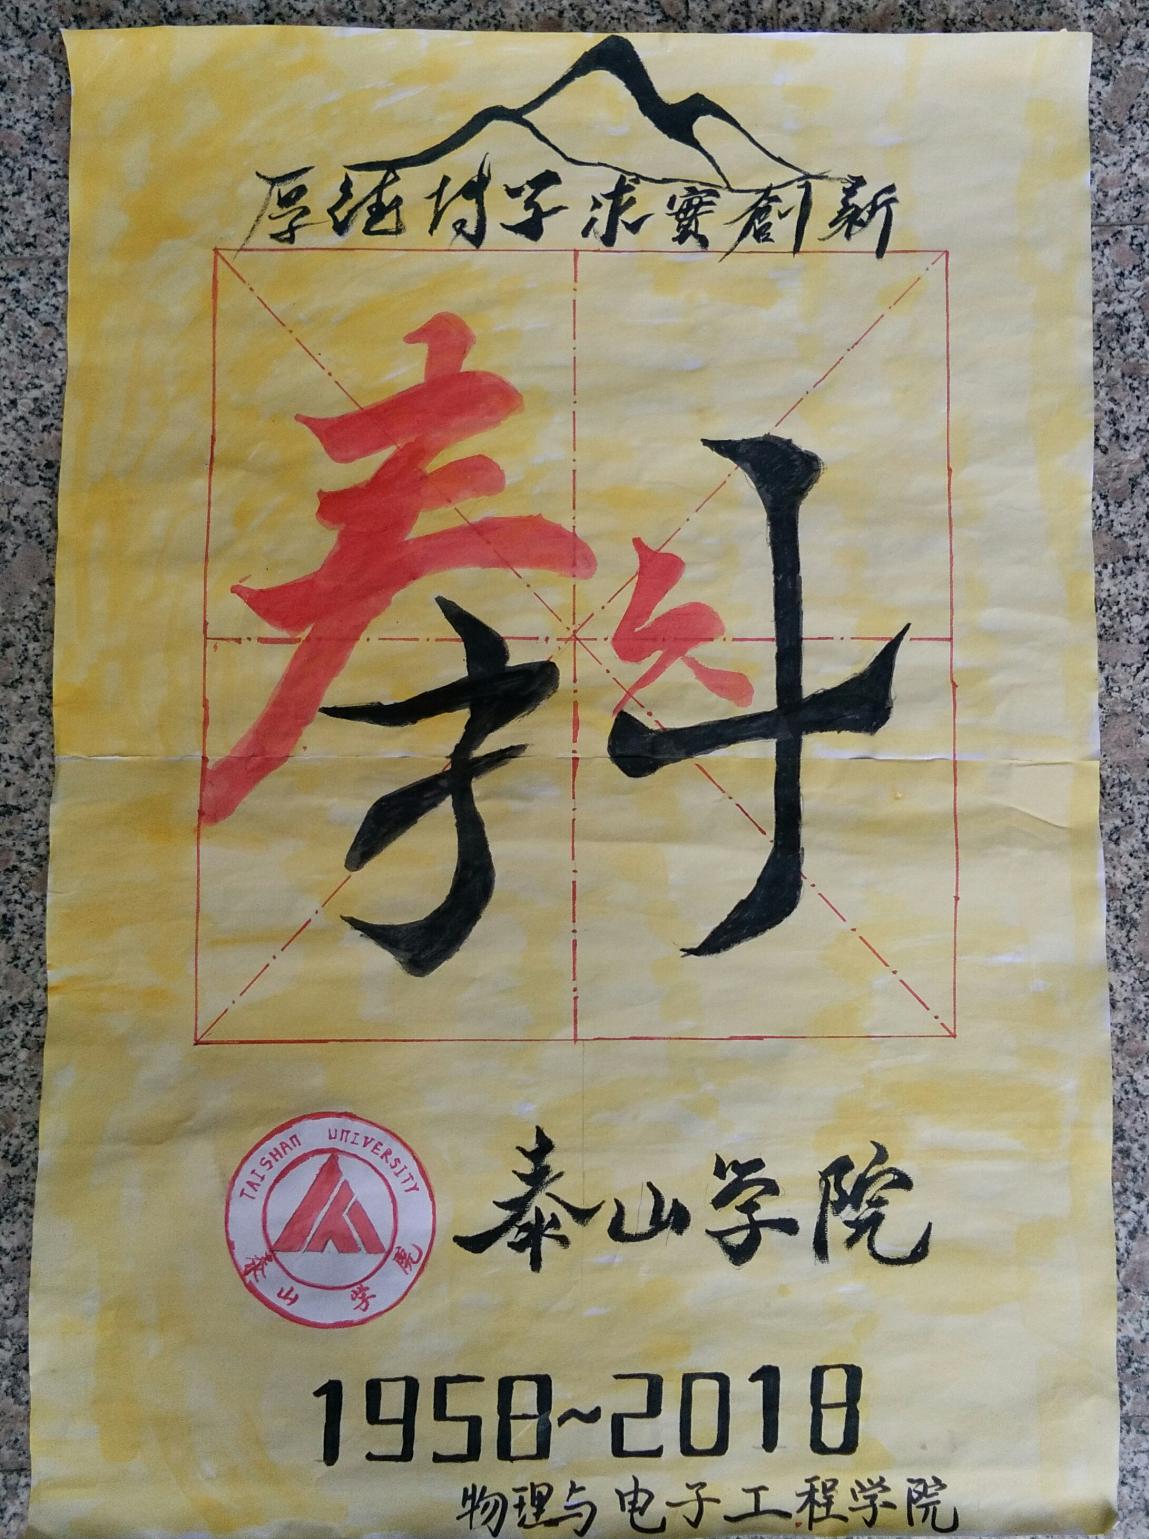 厚德博学求實創新
TAISHAN UNIVERSITY
泰山学院
泰山学院
1958~2018
物理与电子工程学院